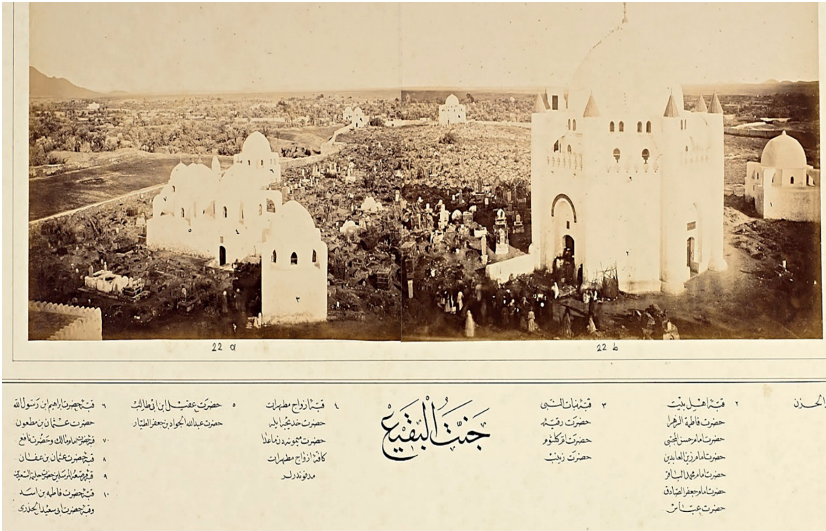 22 a
22 b
جنت البقيع
الحزن
٢ قبۀ اهل بيت
حضرت فاطمة الزهرا
حضرت امام حسن المجتبى
حضرت امام زين العابدين
حضرت امام محمد الباقر
حضرت امام جعفر الصادق
حضرت عباس
٣ قبۀ بنات النبى
حضرت رقيه
حضرت ام كلثوم
حضرت زينب
٤ قبۀ ازواج مطهرات
حضرت خديجه ايله
حضرت ميمونه دن ماعدا
كافۀ ازواج مطهرات
مدفوندرلر
٥ حضرت عقيل ابن ابى طالب
حضرت عبدالله الجواد بن جعفر الطيار
٦ قبۀ حضرت ابراهيم ابن رسول الله
حضرت عثمان بن مظعون
٧ قبۀ حضرت امام مالك وحضرت نافع
٨ قبۀ حضرت عثمان بن عفان
٩ قبۀ حضرت حليمة السعديه
١٠ قبۀ حضرت فاطمه بن اسد
وقبۀ حضرت ابى سعيد الخدرى